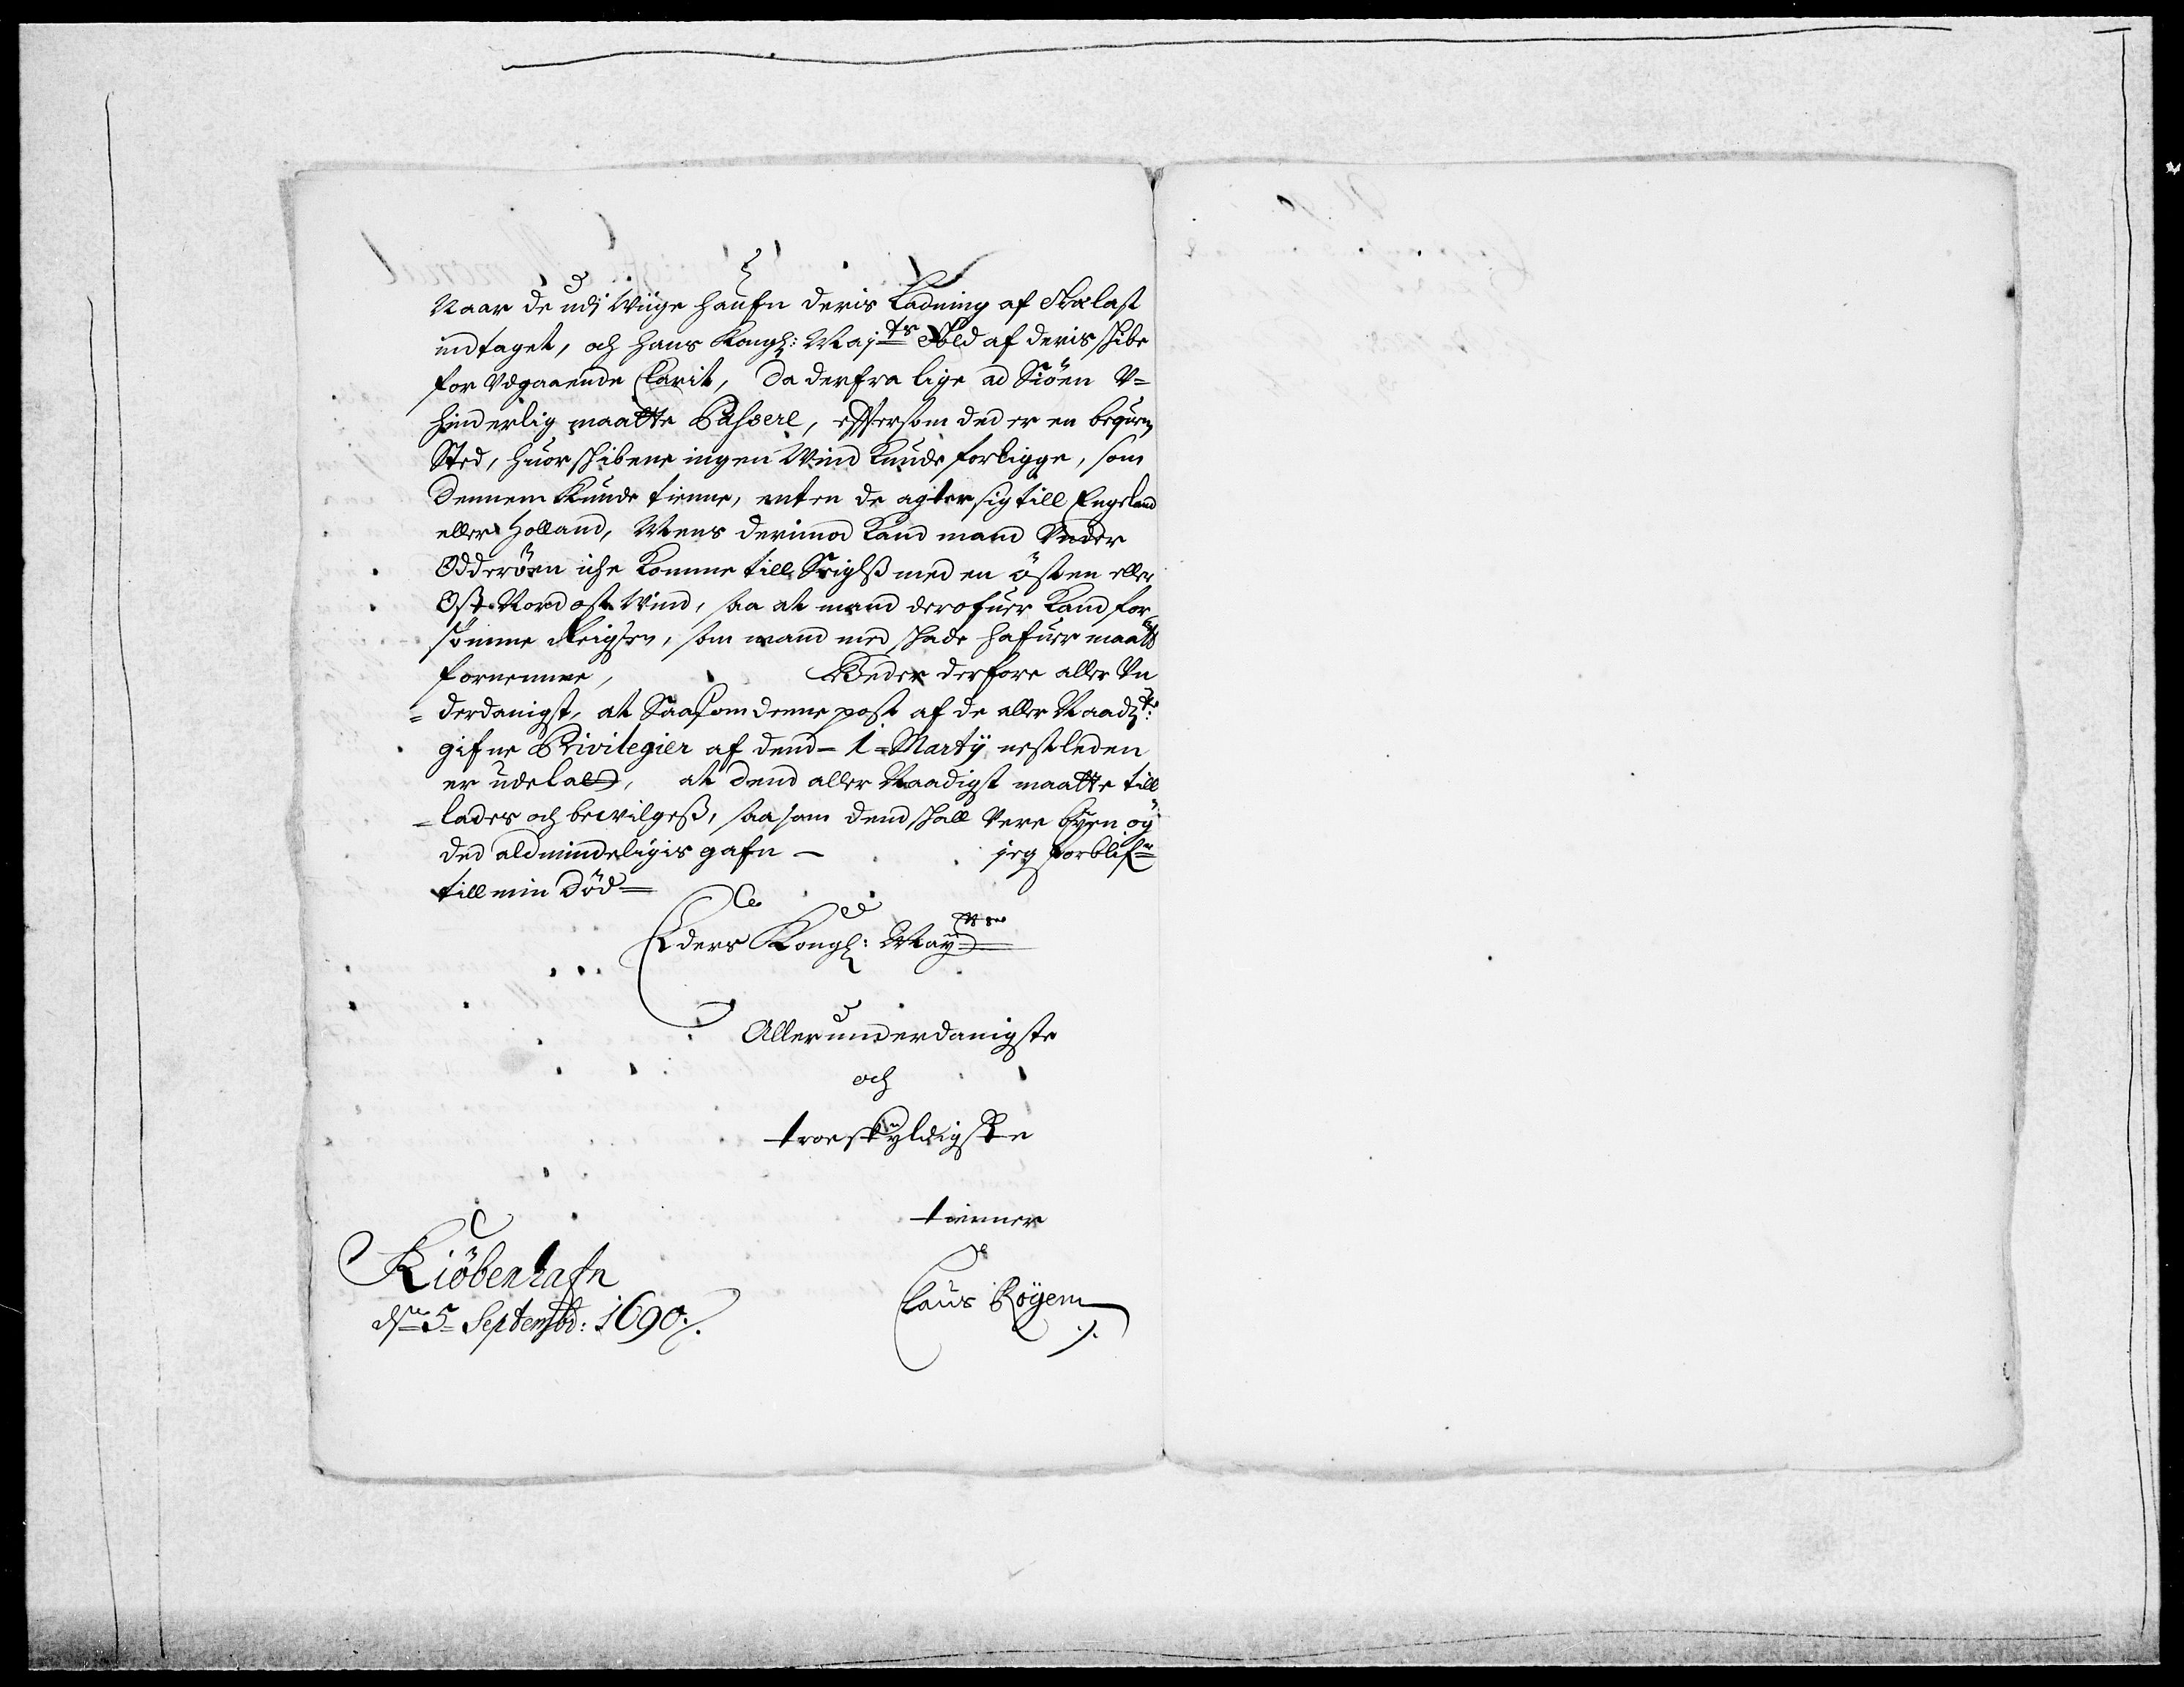 Naar de udj Wiige Haufn deris Ladning af Trælast
indtaget, och hans Kongl: Maj:ts Told af deris skibe
for Udgaaende Clarit, da derfra lige ad Siöen U=
hinderlig maatte Passere, effersom ded er en beqvem
Sted, huor skibene ingen Wind Kunde forligge, som
dennem Kunde tienne, enten de agter sig till Engeland
eller Holland, Mens derimod Kand mand Under
Odderöen iche Komme till Seigls med en östen eller
Ost Nord ost Wind, saa at mand derofuer Kand for=
sömme Reigsen, som mand med skade hafuer maatt
fornemme, Beder derfore aller Un
=derdanigst, at Saasom denne post af de aller Naadigst
gifne Privilegier af dend 1 Marty nestleden
er udelatt, at dend aller Naadigst maatte till
=lades och bevilges, saa som dend skall Vere Byen og
ded aldmindeligis gafn - jeg forblifr
till min död
Eders Kongl: May:ts
Allerunderdanigste
och
troeskyldigste
tienner
Kiöbenhafn
d: 5 Septembr: 1690
Claus Röyem